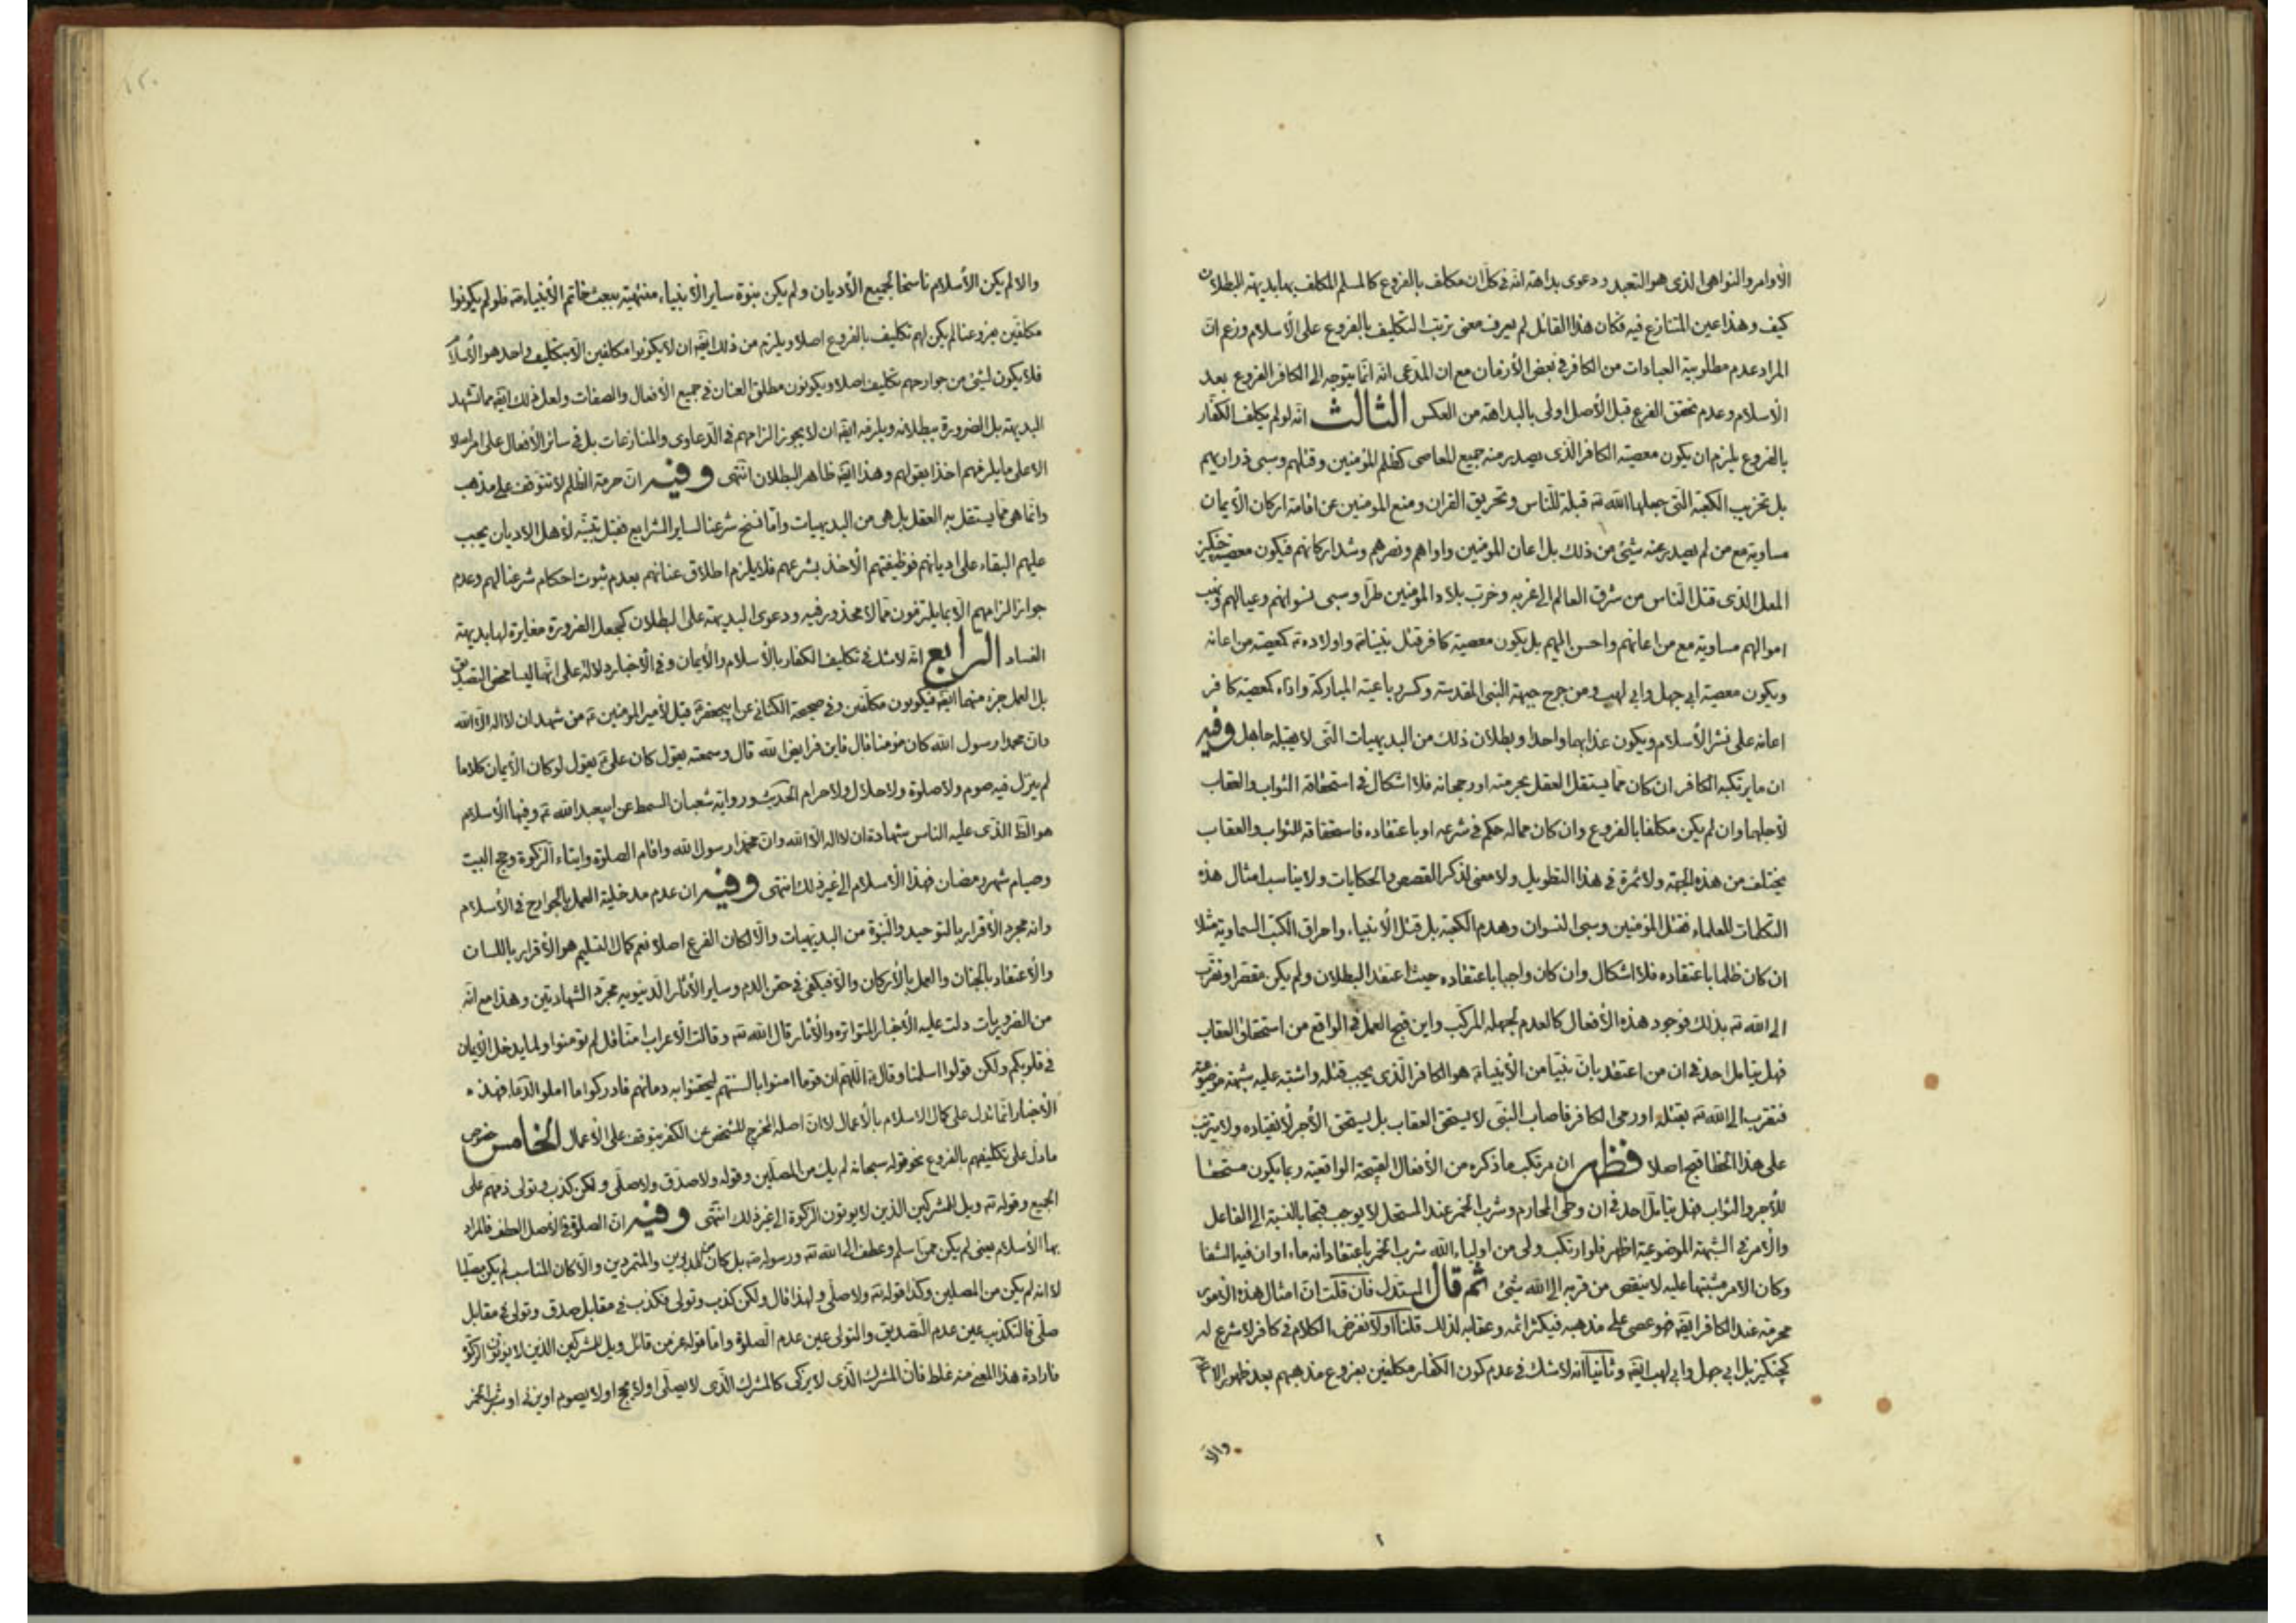 الأوامر والنواهى الذى هو التعبد ودعوى بداهة انه فى كل ان مكلف بالفروع كالمسلم المكلف بها بديهية البطلان
كيف وهذا عين المتنازع فيه فكان هذا القائل لم يعرف معنى ترتب التكليف بالفروع على الاسلام وزعم ان
المراد عدم مطلوبية العبادات من الكافر فى بعض الأزمان مع ان المدعى انه انما يتوجه الى الكافر الفروع بعد
الاسلام وعدم تحقق الفرع قبل الأصل اولى بالبداهة من العكس الثالث انه لو لم يكلف الكفار
بالفروع يلزم ان يكون معصية الكافر الذى يصدر منه جميع المعاصى كظلم المؤمنين وقتلهم وسبى ذراريهم
بل تخريب الكعبة التى جعلها الله تع قبلة للناس وتحريق القران ومنع المومنين عن اقامة اركان الأيمان
مساوية مع من لم يصدر عنه شيئ من ذلك بل اعان المومنين واواهم ونصرهم وشد اركانهم فيكون معصية چنكيز
المغل الذى قتل الناس من شرق العالم الى غربه وخرب بلاد المومنين طرا وسبى نسوانهم وعيالهم ونهب
اموالهم مساوية مع من اعانهم واحسن اليهم بل يكون معصية كافر قتل نبيا واولاده كمعصية من اعانه
ويكون معصية ابى جهل وابى لهب ومن جرح جبهة النبى المقدسة وكسر رباعيته المباركة واذاه كمعصية كافر
اعانه على نشر الأسلام ويكون عذابهما واحدا وبطلان ذلك من البديهيات التى لا يقبله جاهل وفيه
ان ما يرتكبه الكافر ان كان مما يستقل العقل بحرمته او رجحانه فلا اشكال فى استحقاقه الثواب والعقاب
لأجلهما وان لم يكن مكلفا بالفروع وان كان مما له حكم فى شرعه او باعتقاده فاستحقاقه للثواب والعقاب
يختلف من هذه الجهة ولا ثمرة فى هذا التطويل ولا معنى لذكر القصص والحكايات ولا يناسب امثال هذه
الكلمات للعلماء فقتل المؤمنين وسبى النسوان وهدم الكعبة بل قتل الأنبياء واحراق الكتب السماوية مثلا
ان كان ظلما باعتقاده فلا اشكال وان كان واجبا باعتقاده حيث اعتقد البطلان ولم يكن مقصرا وتقرب
الى الله تع بذلك فوجود هذه الأفعال كالعدم لجهله المركب واين قبح العمل فى الواقع من استحقاق العقاب
فهل يتامل احد فى ان من اعتقد بان نبيا من الأنبياء هو الكافر الذى يجب قتله واشتبه عليه شبهة موضوعية
فتقرب الى الله تع بقتله او رمى الكافر فاصاب النبى لا يستحق العقاب بل يستحق الأجر لأنقياده ولا يترتب
على هذا الخطا قبح اصلا فظهر ان مرتكب ما ذكره من الأفعال القبيحة الواقعية ربما يكون مستحقا
للأجر والثواب فهل يتامل احد فى ان وطى المحارم وشرب الخمر عند المستحل لا يوجب قبحا بالنسبة الى الفاعل
والأمر فى الشبهة الموضوعية اظهر فلو ارتكب ولى من اولياء الله شرب الخمر باعتقاد انه ماء او ان فيه الشفا
وكان الامر مشتبها عليه لا ينقص من قربه الى الله شيئ ثم قال المستدل فان قلت ان امثال هذه الامور
محرمة عند الكافر ايضا فهو عصى على مذهبه فيكثر اثمه وعقابه لذلك قلنا اولا نفرض الكلام فى كافر لا شرع له
كچنكيز بل ابى جهل وابى لهب ايضا وثانيا انه لا شك فى عدم كون الكفار مكلفين بفروع مذهبهم بعد ظهور الاسلام
والا
والا لم يكن الأسلام ناسخا لجميع الأديان ولم يكن نبوة ساير الأنبياء منتهية ببعث خاتم الأنبياء فلو لم يكونوا
مكلفين بفروعنا لم يكن لهم تكليف بالفروع اصلا ويلزم من ذلك ايضا ان لا يكونوا مكلفين الا بتكليف واحد هو الأسلام
فلا يكون لشئ من جوارحهم تكليف اصلا ويكونون مطلق العنان فى جميع الأفعال والصفات ولعل ذلك ايضا مما تشهد
البديهة بل الضرورة ببطلانه ويلزمه ايضا ان لا يجوز الزامهم فى الدعاوى والمنازعات بل فى سائر الأفعال على امر اصلا
الا على ما يلزمهم اخذا بقولهم وهذا ايضا ظاهر البطلان انتهى وفيه ان حرمة الظلم لا تتوقف على مذهب
وانما هى مما يستقل به العقل بل هى من البديهيات واما نسخ شرعنا لساير الشرايع فقبل تبينه لأهل الاديان يجب
عليهم البقاء على اديانهم فوظيفتهم الأخذ بشرعهم فلا يلزم اطلاق عنانهم بعدم ثبوت احكام شرعنا لهم وعدم
جواز الزامهم الا بما يلتزمون مما لا محذور فيه ودعوى البديهة على البطلان كجعل الضرورة مغايرة لها بديهية
الفساد الرابع انه لا شك فى تكليف الكفار بالأسلام والأيمان وفى الأخبار دلالة على انهما ليسا محض التصديق
بل العمل جزء منهما ايضا فيكونون مكلفين وفى صحيحة الكنانى عن ابيجعفر قيل لأمير المؤمنين من شهد ان لا اله الا الله
وان محمدا رسول الله كان مؤمنا قال فاين فرايض الله قال وسمعته يقول كان على يقول لو كان الأيمان كلاما
لم ينزل فيه صوم ولا صلوة ولا حلال ولا حرام الحديث ورواية شعبان السمط عن ابيعبد الله وفيها الأسلام
هو الظ الذى عليه الناس شهادة ان لا اله الا الله وان محمدا رسول الله واقام الصلوة وايتاء الزكوة وحج البيت
وصيام شهر رمضان فهذا الأسلام الى غير ذلك انتهى وفيه ان عدم مدخلية العمل بالجوارح فى الأسلام
وانه مجرد الأقرار بالتوحيد والنبوة من البديهيات والا لكان الفرع اصلا نعم كمال التسليم هو الأقرار باللسان
والأعتقاد بالجنان والعمل بالأركان والا فيكفى فى حقن الدم وساير الأثار الدنيويه مجرد الشهادتين وهذا مع انه
من الضروريات دلت عليه الأخبار المتواتره والأثار قال الله تع وقالت الأعراب امنا قل لم تؤمنوا ولما يدخل الأيمان
فى قلوبكم ولكن قولوا اسلمنا وقال اللهم ان قوما امنوا بالسنتهم ليحقنوا به دمائهم فادركوا ما املوا الدعا فهذه
الأخبار انما تدل على كمال الاسلام بالأعمال لا ان اصله المخرج للشخص عن الكفر يتوقف على الأعمال الخامس خصوص
ما دل على تكليفهم بالفروع نحو قوله سبحانه لم نك من المصلين وقوله ولا صدق ولا صلى ولكن كذب وتولى ذمهم على
الجميع وقوله تع ويل للمشركين الذين لا يوتون الزكوة الى غير ذلك انتهى وفيه ان الصلوة فى الأصل العطف فالمراد
بها الأسلام يعنى لم يكن ممن اسلم وعطف الى الله تع ورسوله بل كان من المدبرين والمتمردين والا كان المناسب لم يكن مصليا
لا انه لم يكن من المصلين وكذا قوله تع ولا صلى ولهذا قال ولكن كذب وتولى فكذب فى مقابل صدق وتولى فى مقابل
صلى فالتكذيب عين عدم التصديق والتولى عين عدم الصلوة واما قوله عز من قائل ويل للمشركين الذين لا يوتون الزكوة
فارادة هذا المعنى منه غلط فان المشرك الذى لا يزكى كالمشرك الذى لا يصلى او لا يحج او لا يصوم او يزنى او يشرب الخمر